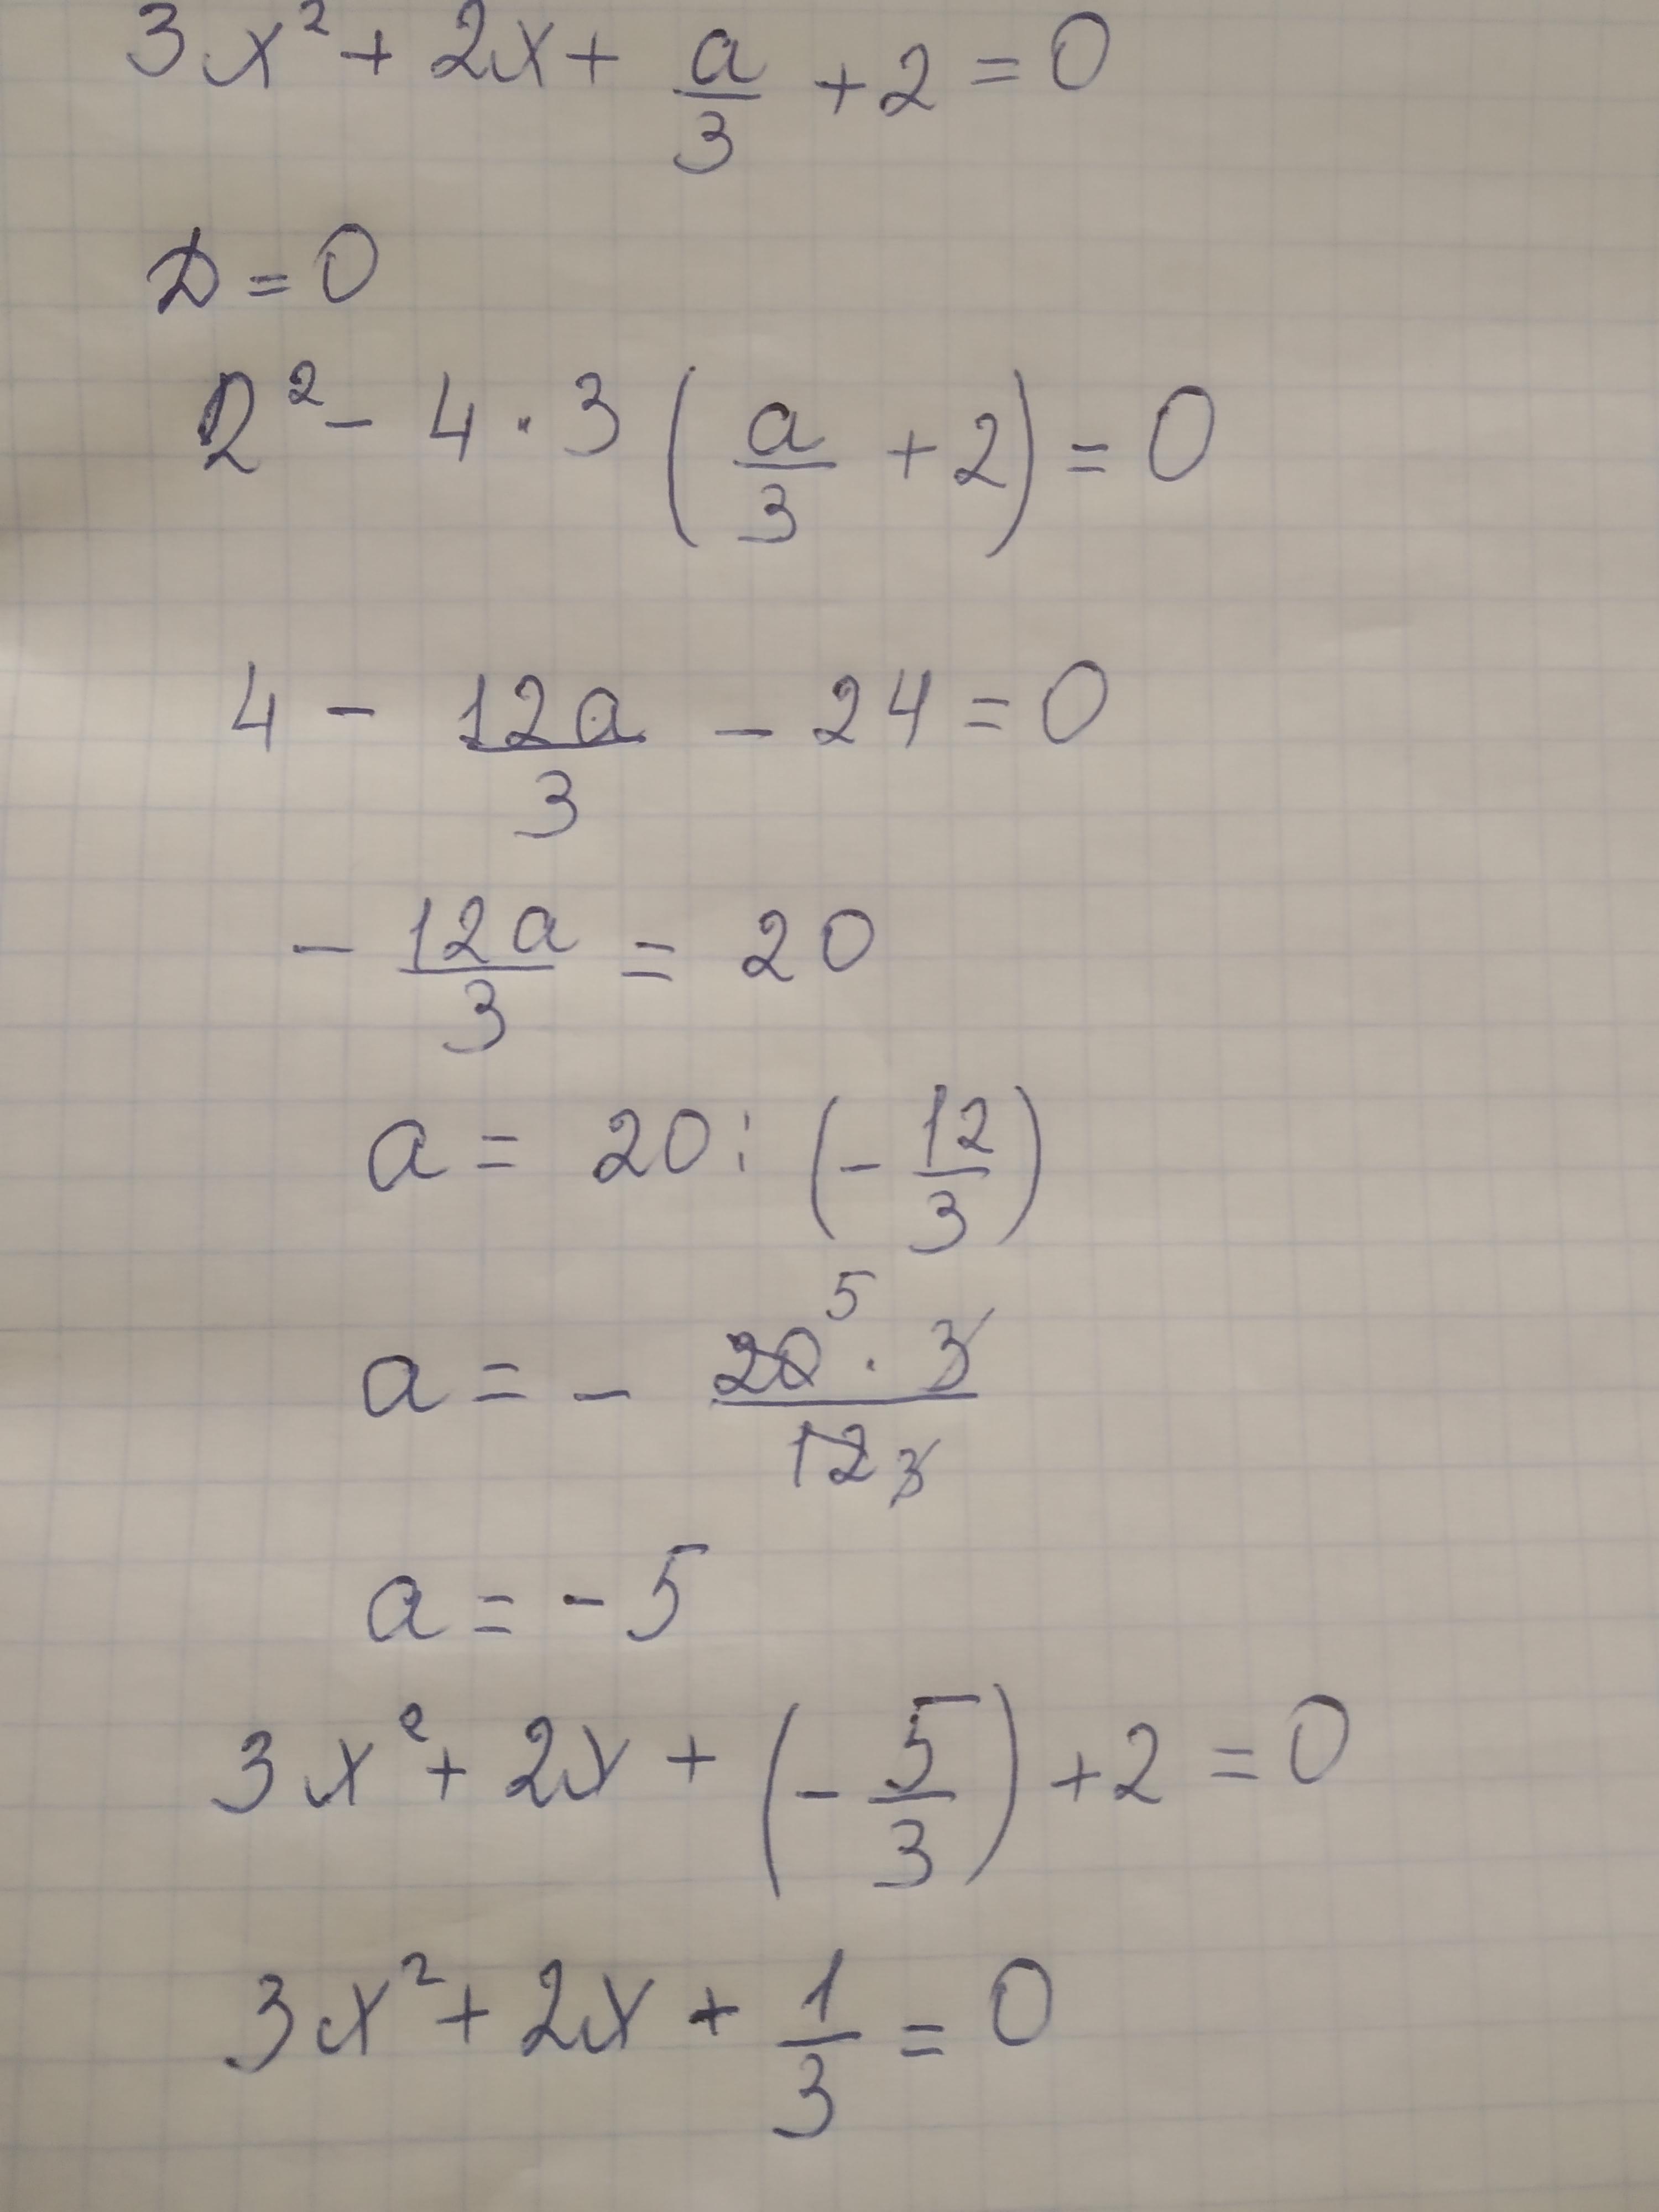 3x² + 2x + a/3 + 2 = 0
D = 0
2² - 4 · 3 (a/3 + 2) = 0
4 - 12a/3 - 24 = 0
- 12a/3 = 20
a = 20 : (- 12/3)
5
a = - 20 · 3
12 3
a = - 5
3x² + 2x + (- 5/3) + 2 = 0
3x² + 2x + 1/3 = 0